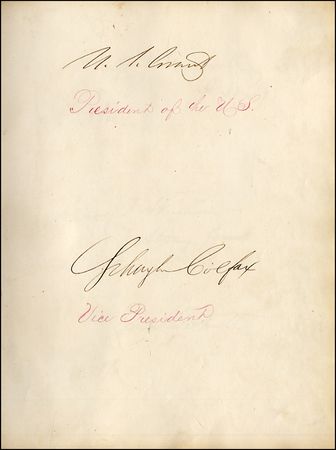 U. S. Grant
President of the U.S.
Schuyler Colfax
Vice President